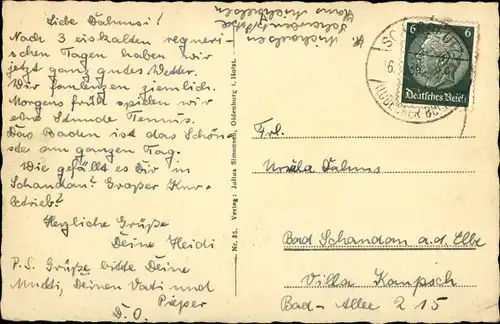 Liebe Dahmsi!
Nach 3 eiskalten regneri-
schen Tagen haben wir
jetzt ganz gutes Wetter.
Wir faulenzen ziemlich.
Morgens früh spielen wir
eine Stunde Tennis.
Das Baden ist das Schön-
ste am ganzen Tag.
Wie gefällt es Dir in
Schandau? Großer Kur-
betrieb?
Herzliche Grüße
Deine Heidi
P.S. Grüße bitte Deine
Mutti, Deinen Vati und
D.O.
Nr. 35. Verlag: Julius Simonsen, Oldenburg i. Holst.
6 6
Deutsches Reich
Frl.
Ursula Dahms
Bad Schandau a.d. Elbe
Villa Kanpsch
Bad-Allee 215